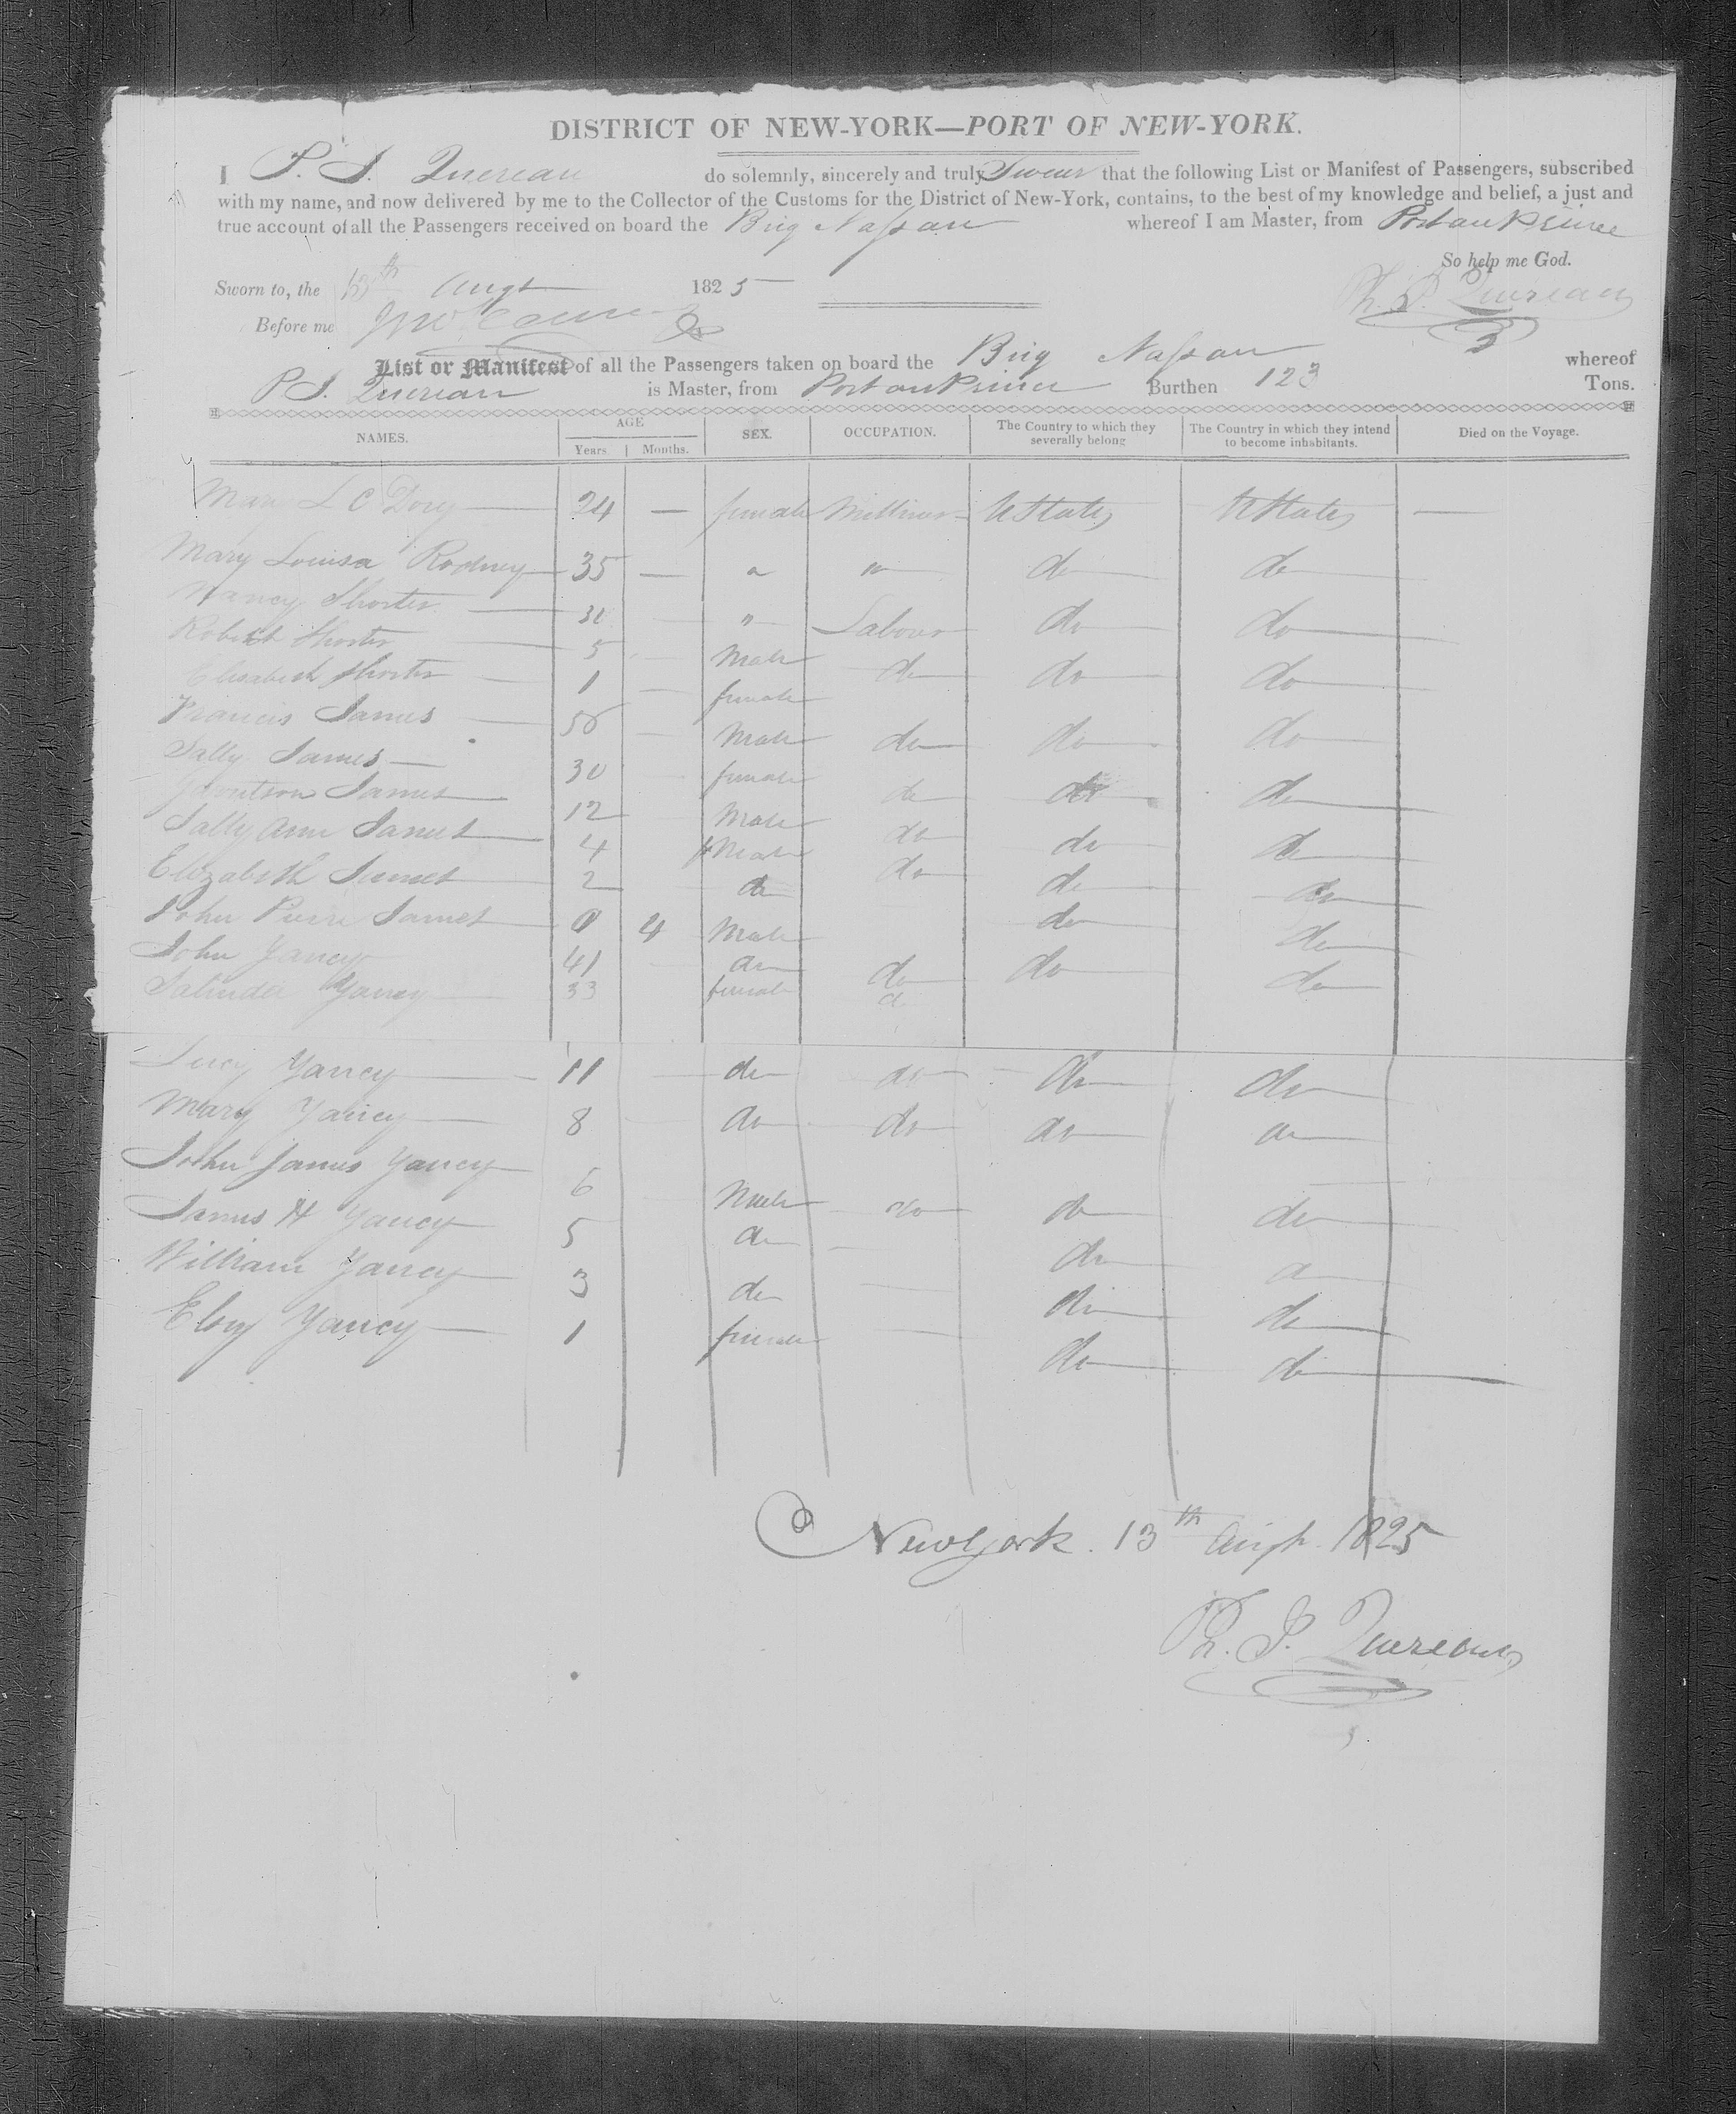 DISTRICT OF NEW-YORK—PORT OF NEW-YORK.
I P. S. Quereau do solemnly, sincerely and truly Swear that the following List or Manifest of Passengers, subscribed
with my name, and now delivered by me to the Collector of the Customs for the District of New-York, contains, to the best of my knowledge and belief, a just and
true account of all the Passengers received on board the Brig Nassau whereof I am Master, from Port au Prince
So help me God.
Sworn to, the 13th Augt 1825
P. S. Quereau
Before me
List or Manifest of all the Passengers taken on board the Brig Nassau whereof
P S. Quereau is Master, from Port au Prince Burthen 123 Tons.
NAMES. AGE Years. Months. SEX. OCCUPATION. The Country to which they severally belong The Country in which they intend to become inhabitants. Died on the Voyage.
L C Dory 24 — female Milliner UStates UStates —
Mary Louisa Rodney 35 — " " do do
Nancy Shorter " Labour do do
Robert Shorter 5 Male do do do
Elisabeth Shorter 1 female
Francis James 50 Male do do do
Sally James 30 female do do do
James 12 Male do do do
Sally Ann James 4 feMale do do do
Elizabeth James 2 do do do
John Pierre James 0 4 Male do do
John Yancy 41 do do do do
Yancy 33 female do
Lucy Yancy 11 do do do do
Mary Yancy 8 do do do do
John James Yancy 6 Male do do do
James H Yancy 5 do do do
William Yancy 3 do do do
Yancy 1 female do do
New York. 13th Augt. 1825
P. S. Quereau